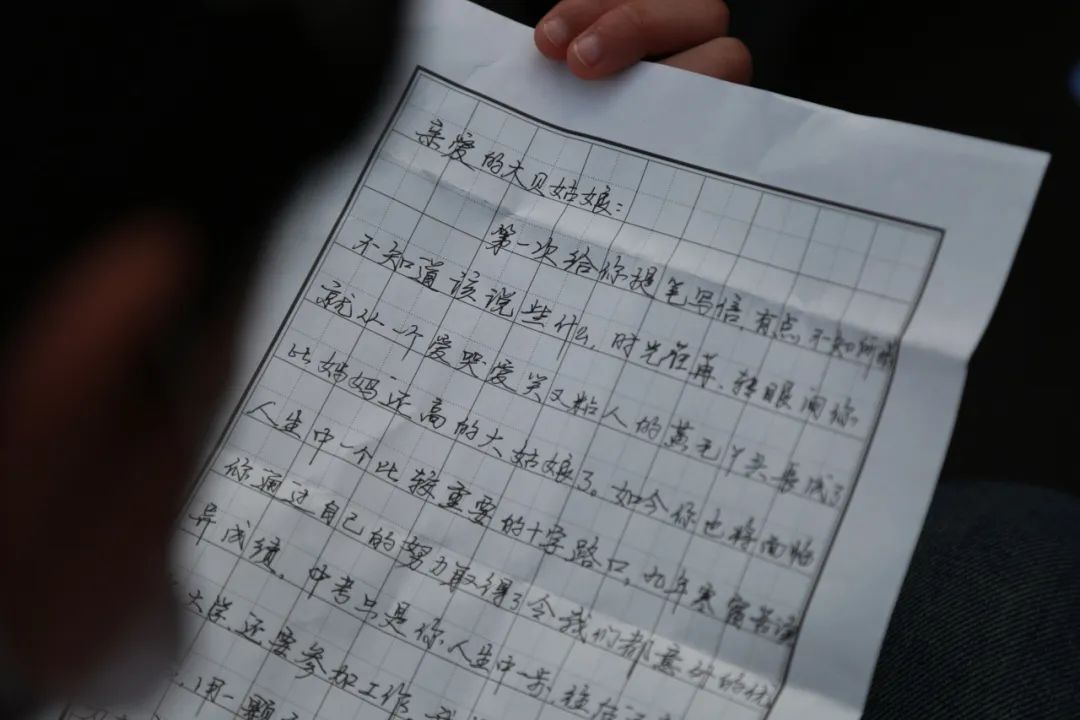 亲爱的大贝姑娘：
第一次给你提笔写信，有点不知所措
不知道该说些什么，时光荏苒，转眼间你
就从一个爱哭爱笑又粘人的黄毛丫头长成了
比妈妈还高的大姑娘了。如今你也将面临
人生中一个比较重要的十字路口，九年寒窗苦读
你通过自己的努力取得了令我们都意外的优
异成绩，中考只是你人生中一步，往后还
大学还要参加工作，
用一颗